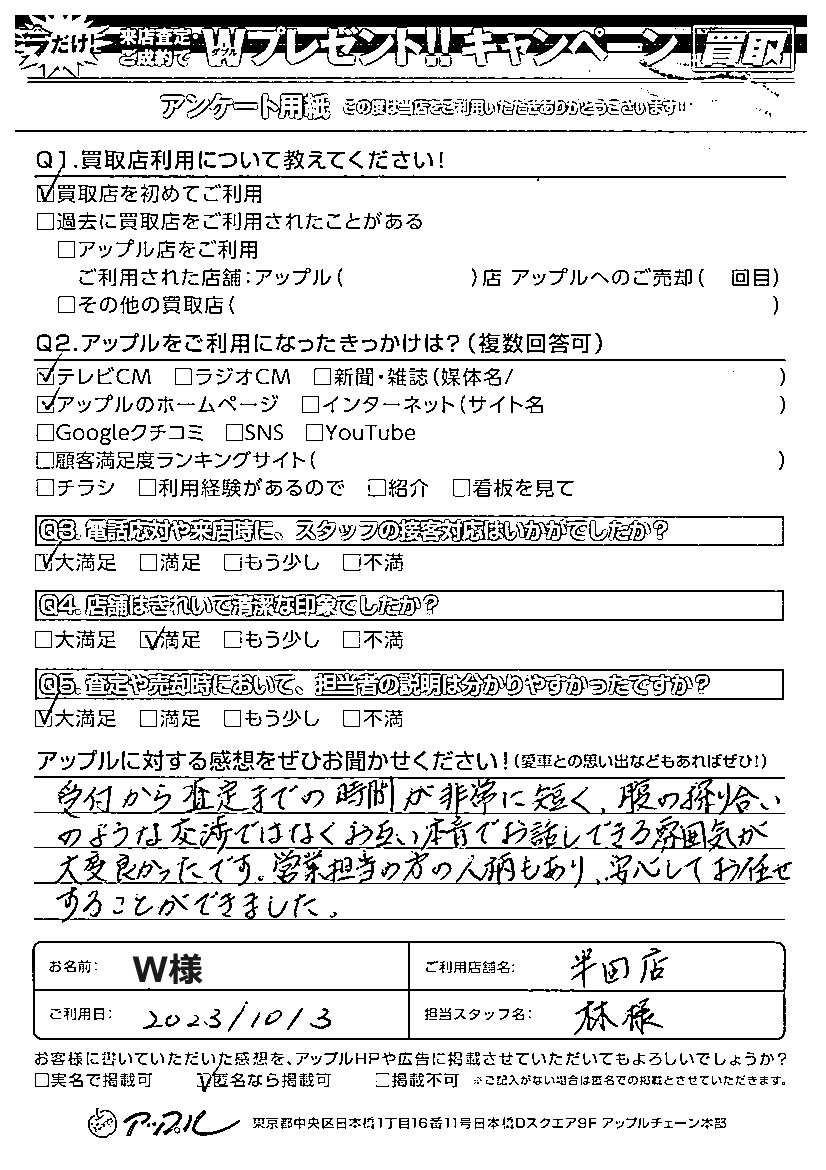 今だけ! 来店査定・ご成約で W ダブル プレゼント!! キャンペーン 買取
アンケート用紙 この度は当店をご利用いただきありがとうございます!!
Q1.買取店利用について教えてください!
☑買取店を初めてご利用
□過去に買取店をご利用されたことがある
□アップル店をご利用
ご利用された店舗:アップル( )店 アップルへのご売却( 回目)
□その他の買取店( )
Q2.アップルをご利用になったきっかけは?(複数回答可)
☑テレビCM □ラジオCM □新聞・雑誌(媒体名/ )
☑アップルのホームページ □インターネット(サイト名 )
□Googleクチコミ □SNS □YouTube
□顧客満足度ランキングサイト( )
□チラシ □利用経験があるので □紹介 □看板を見て
Q3.電話応対や来店時に、スタッフの接客対応はいかがでしたか?
☑大満足 □満足 □もう少し □不満
Q4.店舗はきれいで清潔な印象でしたか?
□大満足 ☑満足 □もう少し □不満
Q5.査定や売却時において、担当者の説明は分かりやすかったですか?
☑大満足 □満足 □もう少し □不満
アップルに対する感想をぜひお聞かせください!(愛車との思い出などもあればぜひ!)
受付から査定までの時間が非常に短く、腹の探り合い
のような交渉ではなくお互い本音でお話しできる雰囲気が
大変良かったです。営業担当の方の人柄もあり、安心してお任せ
することができました。
お名前: W様 ご利用店舗名: 半田店
ご利用日: 2023/10/3 担当スタッフ名: 林様
お客様に書いていただいた感想を、アップルHPや広告に掲載させていただいてもよろしいでしょうか?
□実名で掲載可 ☑匿名なら掲載可 □掲載不可 ※ご記入がない場合は匿名での掲載とさせていただきます。
アップル 東京都中央区日本橋1丁目16番11号日本橋Dスクエア9F アップルチェーン本部